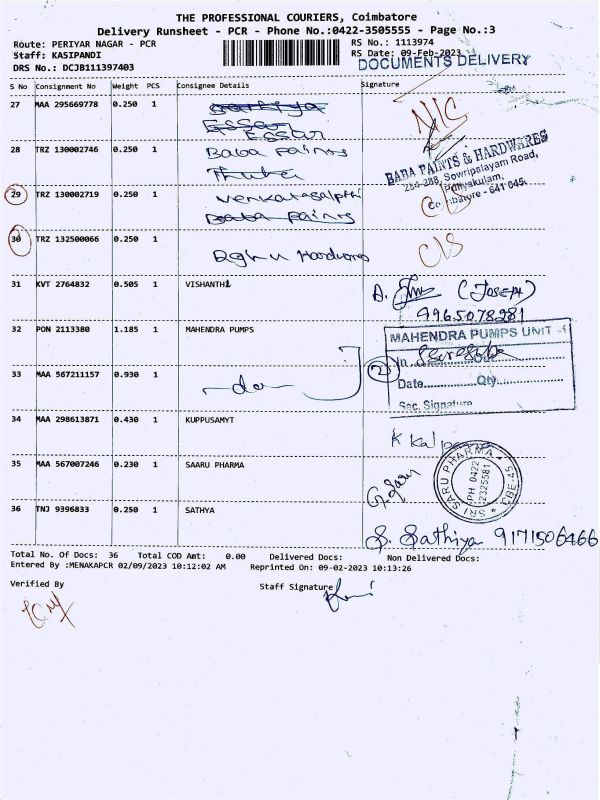 THE PROFESSIONAL COURIERS, Coimbatore
Delivery Runsheet - PCR - Phone No.:0422-3505555 - Page No.:3
Route: PERIYAR NAGAR - PCR
Staff: KASIPANDI
DRS No.: DCJB111397403
RS No.: 1113974
RS Date: 09-Feb-2023
DOCUMENTS DELIVERY
S No Consignment No Weight PCS Consignee Details Signature
27 MAA 295669778 0.250 1
Essar
Essar
28 TRZ 130002746 0.250 1 Baba Paints
BABA PAINTS & HARDWARES
284-288, Sowripalayam Road,
Coimbatore - 641 045.
29 TRZ 130002719 0.250 1
Baba Paints
C/S
30 TRZ 132500066 0.250 1 Hardwares
C/S
31 KVT 2764832 0.505 1 VISHANTHI (Joseph)
9965078281
32 PON 2113380 1.185 1 MAHENDRA PUMPS
MAHENDRA PUMPS UNIT -1
In Out
Date Qty
Sec. Signature
2
33 MAA 567211157 0.930 1 -do-
34 MAA 298613871 0.430 1 KUPPUSAMYT
35 MAA 567007246 0.230 1 SAARU PHARMA
SRI SARU PHARMA * CBE-45 *
PH 0422
2325581
36 TNJ 9396833 0.250 1 SATHYA S. Sathiya 9171506466
Total No. Of Docs: 36 Total COD Amt: 0.00 Delivered Docs: Non Delivered Docs:
Entered By :MENAKAPCR 02/09/2023 10:12:02 AM Reprinted On: 09-02-2023 10:13:26
Verified By Staff Signature